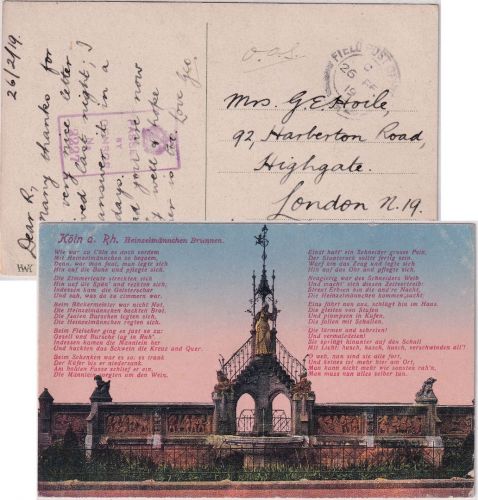 26/2/19.
Dear R,
many thanks for
very nice letter
last night; I
answer it in a
days.
you are now
well & hope
Love Geo.
PASSED
BY
CENSOR
O.A.S.
FIELD POST
C
26 FE
19
Mrs. G.E. Hoile,
92, Harberton Road,
Highgate.
London N.19.
HWK
Köln a. Rh. Heinzelmännchen Brunnen.
Wie war zu Cöln es doch vordem
Mit Heinzelmännchen so bequem,
Denn, war man faul, man legte sich
Hin auf die Bank und pflegte sich.
Die Zimmerleute streckten sich
Hin auf die Spän' und reckten sich,
Indessen kam die Geisterschar
Und sah, was da zu zimmern war.
Beim Bäckermeister war nicht Not,
Die Heinzelmännchen backten Brot.
Die faulen Burschen legten sich,
Die Heinzelmännchen regten sich.
Beim Fleischer ging es just so zu:
Gesell und Bursche lag in Ruh',
Indessen kamen die Männlein her
Und hackten das Schwein die Kreuz und Quer.
Beim Schenken war es so; es trank
Der Küfer bis er niedersank.
Am hohlen Fasse schlief er ein,
Die Männlein sorgten um den Wein.
Einst hatt' ein Schneider grosse Pein,
Der Staatsrock sollte fertig sein.
Warf hin das Zeug und legte sich
Hin auf das Ohr und pflegte sich.
Neugierig war des Schneiders Weib
Und macht' sich diesen Zeitvertreib:
Streut Erbsen hin die and're Nacht.
Die Heinzelmännchen kommen sacht;
Eins fährt nun aus, schlägt hin im Haus.
Die gleiten von Stufen
Und plumpsen in Kufen,
Die fallen mit Schallen,
Die lärmen und schreien
Und vermaledeien!
Sie springt hinunter auf den Schall
Mit Licht: husch, husch, husch, verschwinden all'!
O weh, nun sind sie alle fort,
Und keines ist mehr hier am Ort,
Man kann nicht mehr wie sonsten ruh'n,
Man muss nun alles selber tun.